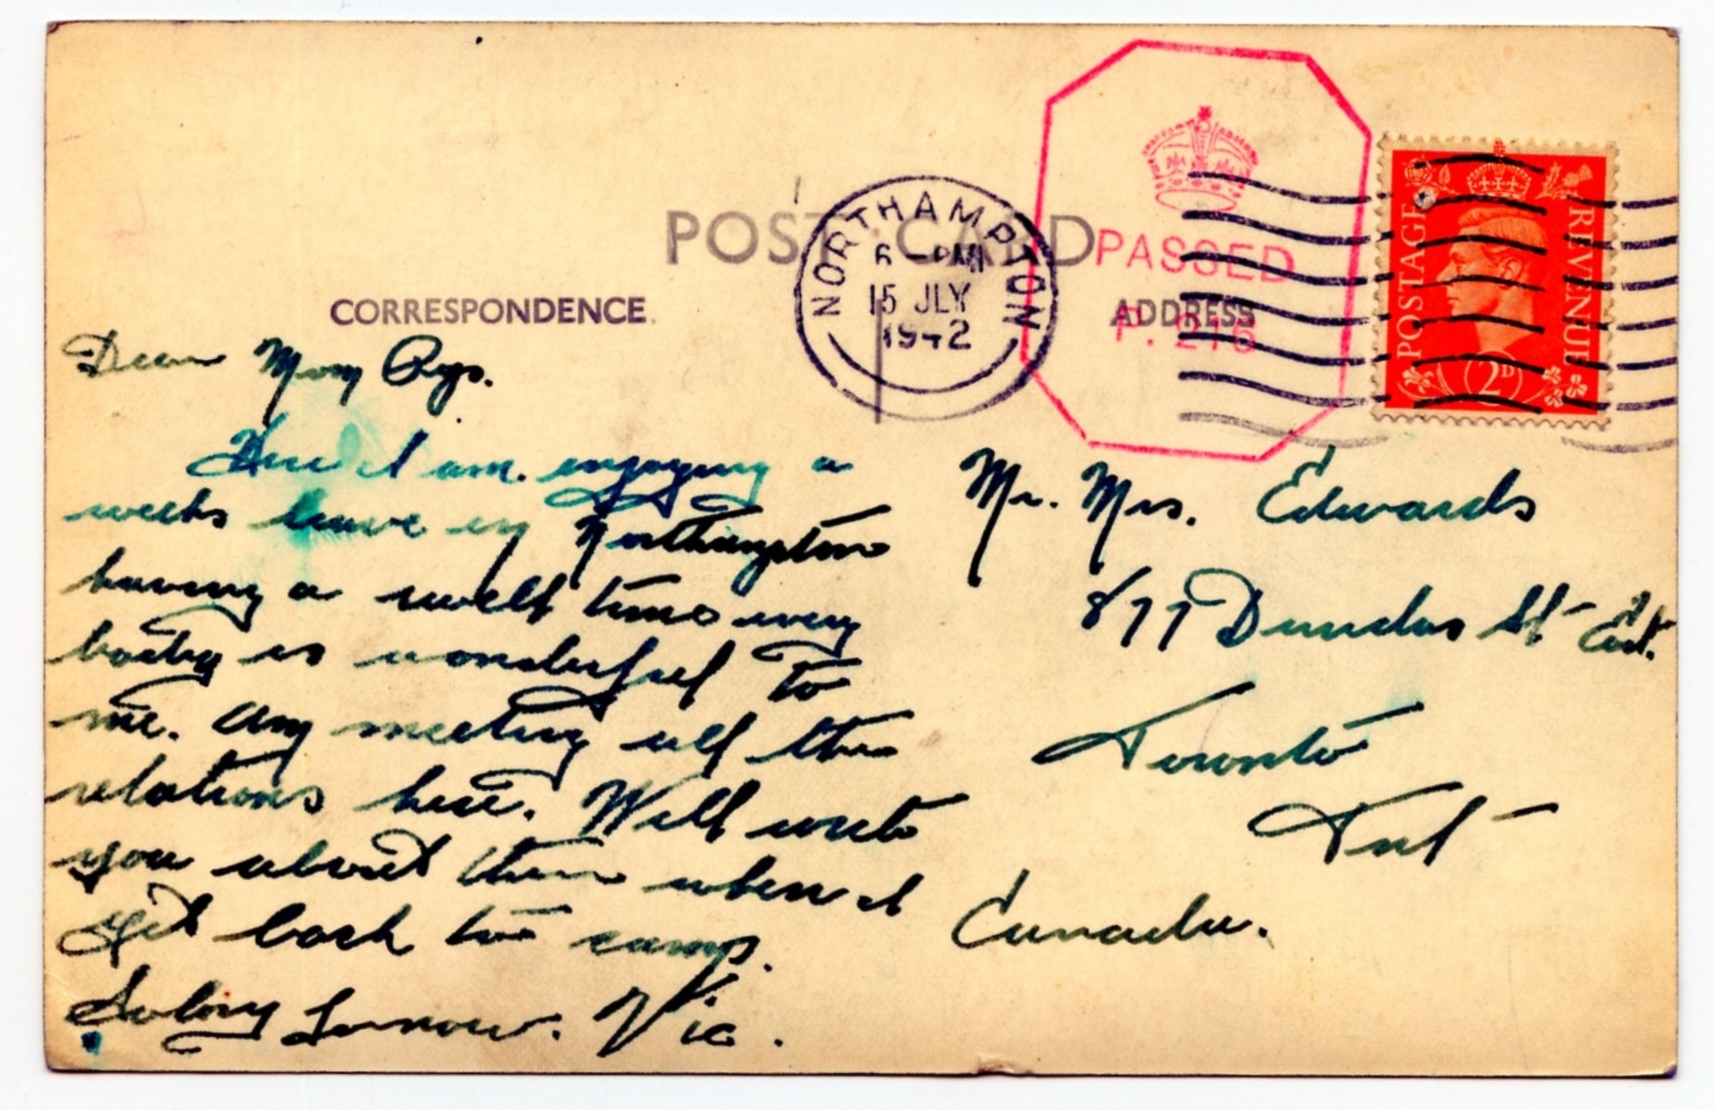 POST CARD
CORRESPONDENCE.
ADDRESS
NORTHAMPTON
6 - PM
15 JLY
1942
PASSED
P. 216
POSTAGE
REVENUE
2D
Dear Mom
Here I am enjoying a
weeks leave in Northampton
having a swell time every
body is wonderful to
me. Am meeting all the
relations here. Will write
you about them when I
get back to camp.
So long for now. Vic.
Mr. Mrs. Edwards
877 Dundas St East.
Toronto
Ont
Canada.